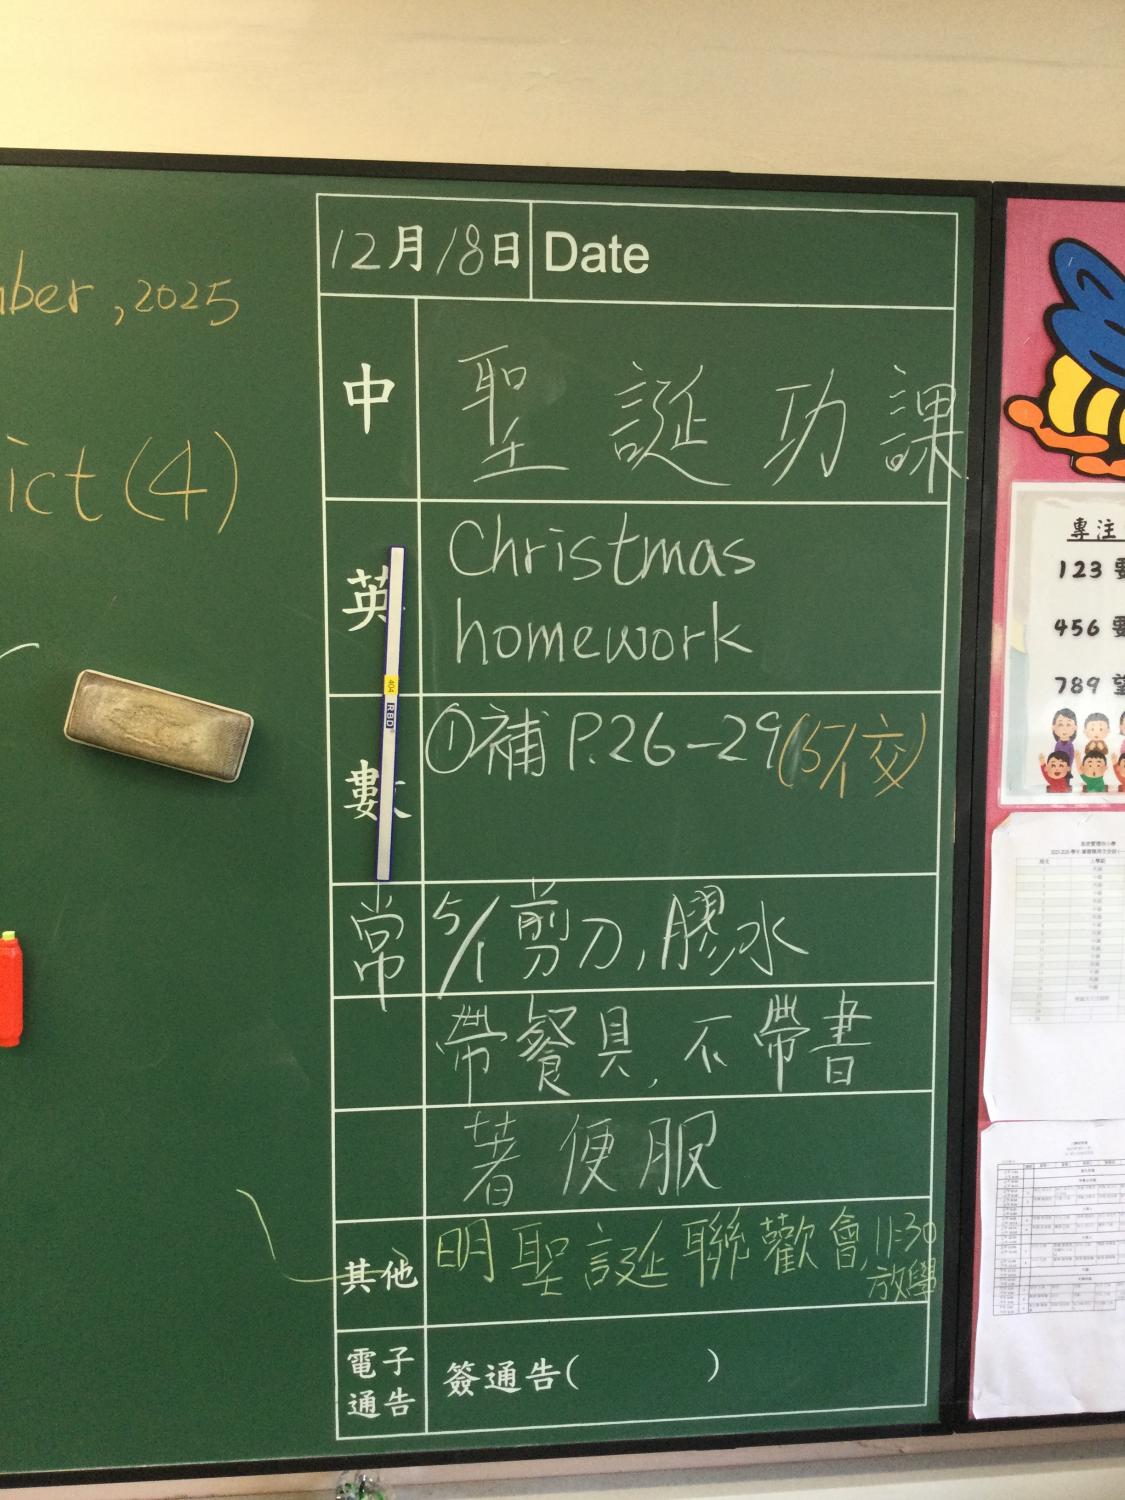 12月18日 Date
mber, 2025
ict (4)
中 聖誕功課
英 Christmas
homework
數 ①補 P.26-29(5/1交)
404 RBD
常 5/1 剪刀,膠水
帶餐具,不帶書
著便服
其他 明聖誕聯歡會,11:30
放學
電子
通告
簽通告( )
專注
123 要
456 要
789 望